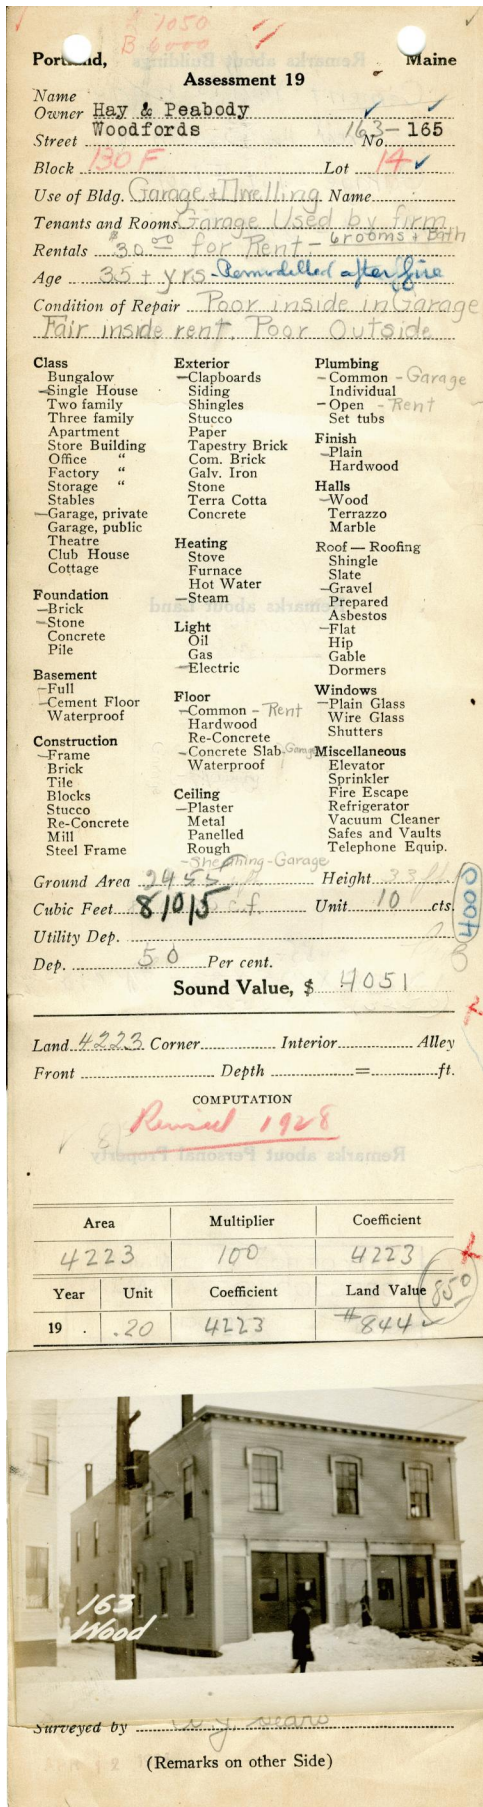 L 1050
B 6000
Portland, Maine
Assessment 19
Name
Owner Hay & Peabody
Street Woodfords No. 163-165
Block 130 F Lot 14
Use of Bldg. Garage + Dwelling Name
Tenants and Rooms Garage Used by firm
Rentals $30.00 for Rent - 6 rooms + Bath
Age 35+ yrs - Remodelled after fire
Condition of Repair Poor inside in Garage
Fair inside rent, Poor Outside
Class
Bungalow
Single House
Two family
Three family
Apartment
Store Building
Office "
Factory "
Storage "
Stables
Garage, private
Garage, public
Theatre
Club House
Cottage
Foundation
Brick
Stone
Concrete
Pile
Basement
Full
Cement Floor
Waterproof
Construction
Frame
Brick
Tile
Blocks
Stucco
Re-Concrete
Mill
Steel Frame
Exterior
Clapboards
Siding
Shingles
Stucco
Paper
Tapestry Brick
Com. Brick
Galv. Iron
Stone
Terra Cotta
Concrete
Heating
Stove
Furnace
Hot Water
Steam
Light
Oil
Gas
Electric
Floor
Common - Rent
Hardwood
Re-Concrete
Concrete Slab - Garage
Waterproof
Ceiling
Plaster
Metal
Panelled
Rough
Sheathing - Garage
Plumbing
Common - Garage
Individual
Open - Rent
Set tubs
Finish
Plain
Hardwood
Halls
Wood
Terrazzo
Marble
Roof — Roofing
Shingle
Slate
Gravel
Prepared
Asbestos
Flat
Hip
Gable
Dormers
Windows
Plain Glass
Wire Glass
Shutters
Miscellaneous
Elevator
Sprinkler
Fire Escape
Refrigerator
Vacuum Cleaner
Safes and Vaults
Telephone Equip.
Ground Area 2455 Height 33 ft
Cubic Feet 81015 c.f. Unit 10 cts.
4000
Utility Dep.
Dep. 50 Per cent.
Sound Value, $ 4051
Land 4223 Corner Interior Alley
Front Depth = ft.
COMPUTATION
Revised 1928
Area Multiplier Coefficient
4223 100 4223
Year Unit Coefficient Land Value 850
19 . .20 4223 #844
163
Wood
Surveyed by W J Sears
(Remarks on other Side)